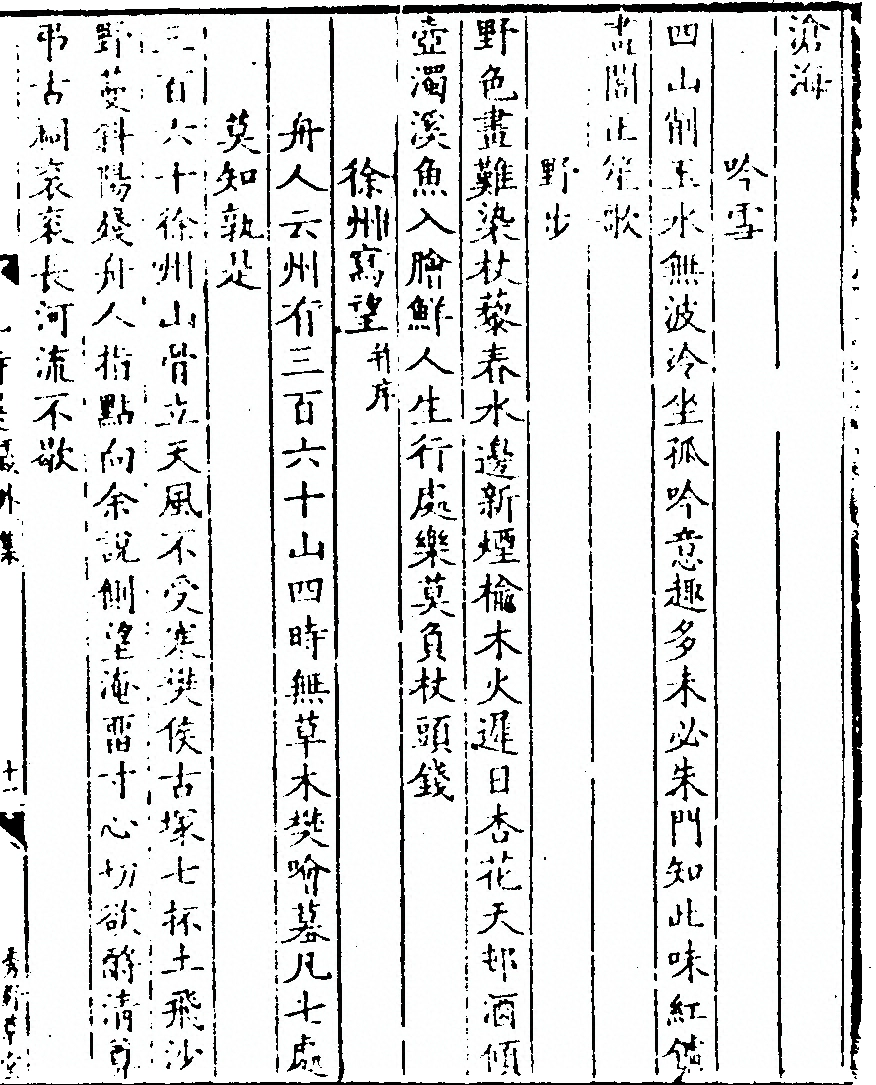 滄海
吟雪
四山削玉水無波冷坐孤吟意趣多未必朱門知此味紅鑪
畫閣正笙歌
野步
野色畫難染杖藜春水邊新煙榆木火遲日杏花天邨酒傾
壺濁溪魚入膾鮮人生行處樂莫負杖頭錢
徐州寫望 并序
舟人云州有三百六十山四時無草木樊噲墓凡七處
莫知孰是
三百六十徐州山骨立天風不受寒樊侯古塚七抔土飛沙
野蔓斜陽殘舟人指點向余說側望淹畱寸心切欲酹清尊
弔古祠衮衮長河流不歇
外集 十一 秀野草堂